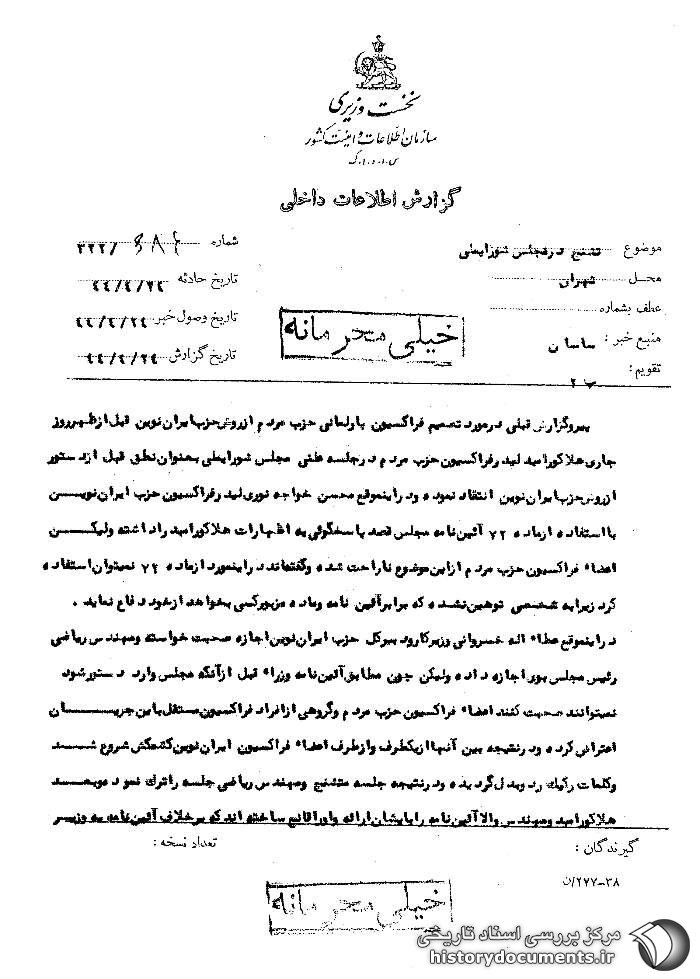 نخست وزیری
سازمان اطلاعات و امنیت کشور
س.ا.و.ا.ک
گزارش اطلاعات داخلی
موضوع تشنج در مجلس شورایملی
شماره ۳۲۲/
محل تهران
تاریخ حادثه
عطف بشماره
تاریخ وصول خبر
منبع خبر : ساسان
تاریخ گزارش
تقویم : ب ۲
خیلی محرمانه
پیرو گزارش قبلی در مورد تصمیم فراکسیون پارلمانی حزب مردم از روش حزب ایران نوین قبل از ظهر روز
جاری هلاکو رامبد لیدر فراکسیون حزب مردم در جلسه علنی مجلس شورایملی بعنوان نطق قبل از دستور
از روش حزب ایران نوین انتقاد نموده و در اینموقع محسن خواجه نوری لیدر فراکسیون حزب ایران نویسن
با استفاده از ماده ۷۲ آئین نامه مجلس قصد پاسخگوئی به اظهارات هلاکو رامبد را داشته ولیکن
اعضاء فراکسیون حزب مردم از این موضوع ناراحت شده و گفته‌اند در اینمورد از ماده ۷۲ نمیتوان استفاده
کرد زیرا به شخصی توهین نشده که برابر آئین نامه و ماده مزبور کسی بخواهد از خود دفاع نماید .
در اینموقع عطاء اله خسروانی وزیر کار و دبیر کل حزب ایران نوین اجازه صحبت خواسته و مهندس ریاضی
رئیس مجلس بوی اجازه داده ولیکن چون مطابق آئین نامه وزراء قبل از آنکه مجلس وارد دستور شود
نمیتوانند صحبت کنند اعضاء فراکسیون حزب مردم و گروهی از افراد فراکسیون مستقل باین جریان
اعتراض کرده و در نتیجه بین آنها از یکطرف و از طرف اعضاء فراکسیون ایران نوین کشمکش شروع شد
و کلمات رکیک رد و بدل گردیده و در نتیجه جلسه متشنج و مهندس ریاضی جلسه را ترک نموده و بعد
هلاکو رامبد و مهندس والا آئین نامه را بایشان ارائه و او را قانع ساخته اند که بر خلاف آئین نامه به وزیر
گیرندگان :
تعداد نسخه :
۳۸-۲۷۷/ن
خیلی محرمانه
مرکز بررسی اسناد تاریخی
historydocuments.ir